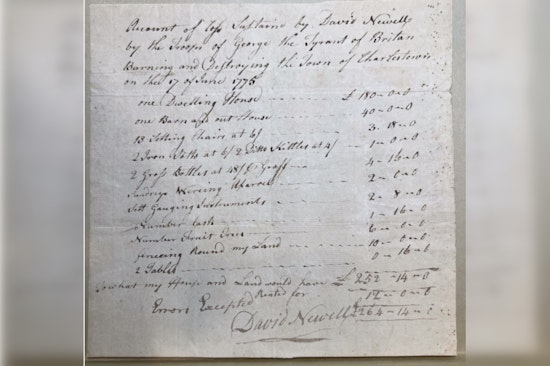 Account of Loss Sustaind by David Newell
by the Troops of George the Tyrant of Britan
Burning and Destroying the Town of Charlestown
on the 17 of June 1775
one Dwelling House £ 180-0-0
one Barn and out House 40-0-0
13 Sitting Chairs at 6/ 3-18-0
2 Iron at 6/ 2 Ditto Kittles at 4/ 1-0-0
2 Gross Bottles at 48/ Pr Gross 4-16-0
2-0-0
Sett Gauging Instruments 2-8-0
Number Cask 1-16-0
Number Fruit Trees 6-0-0
fenceing Round my Land 10-0-0
2 Tables 0-16-0
what my House and Land would have £ 252-14-0
Rented for 12-0-0
Errors Excepted £ 264-14-0
David Newell